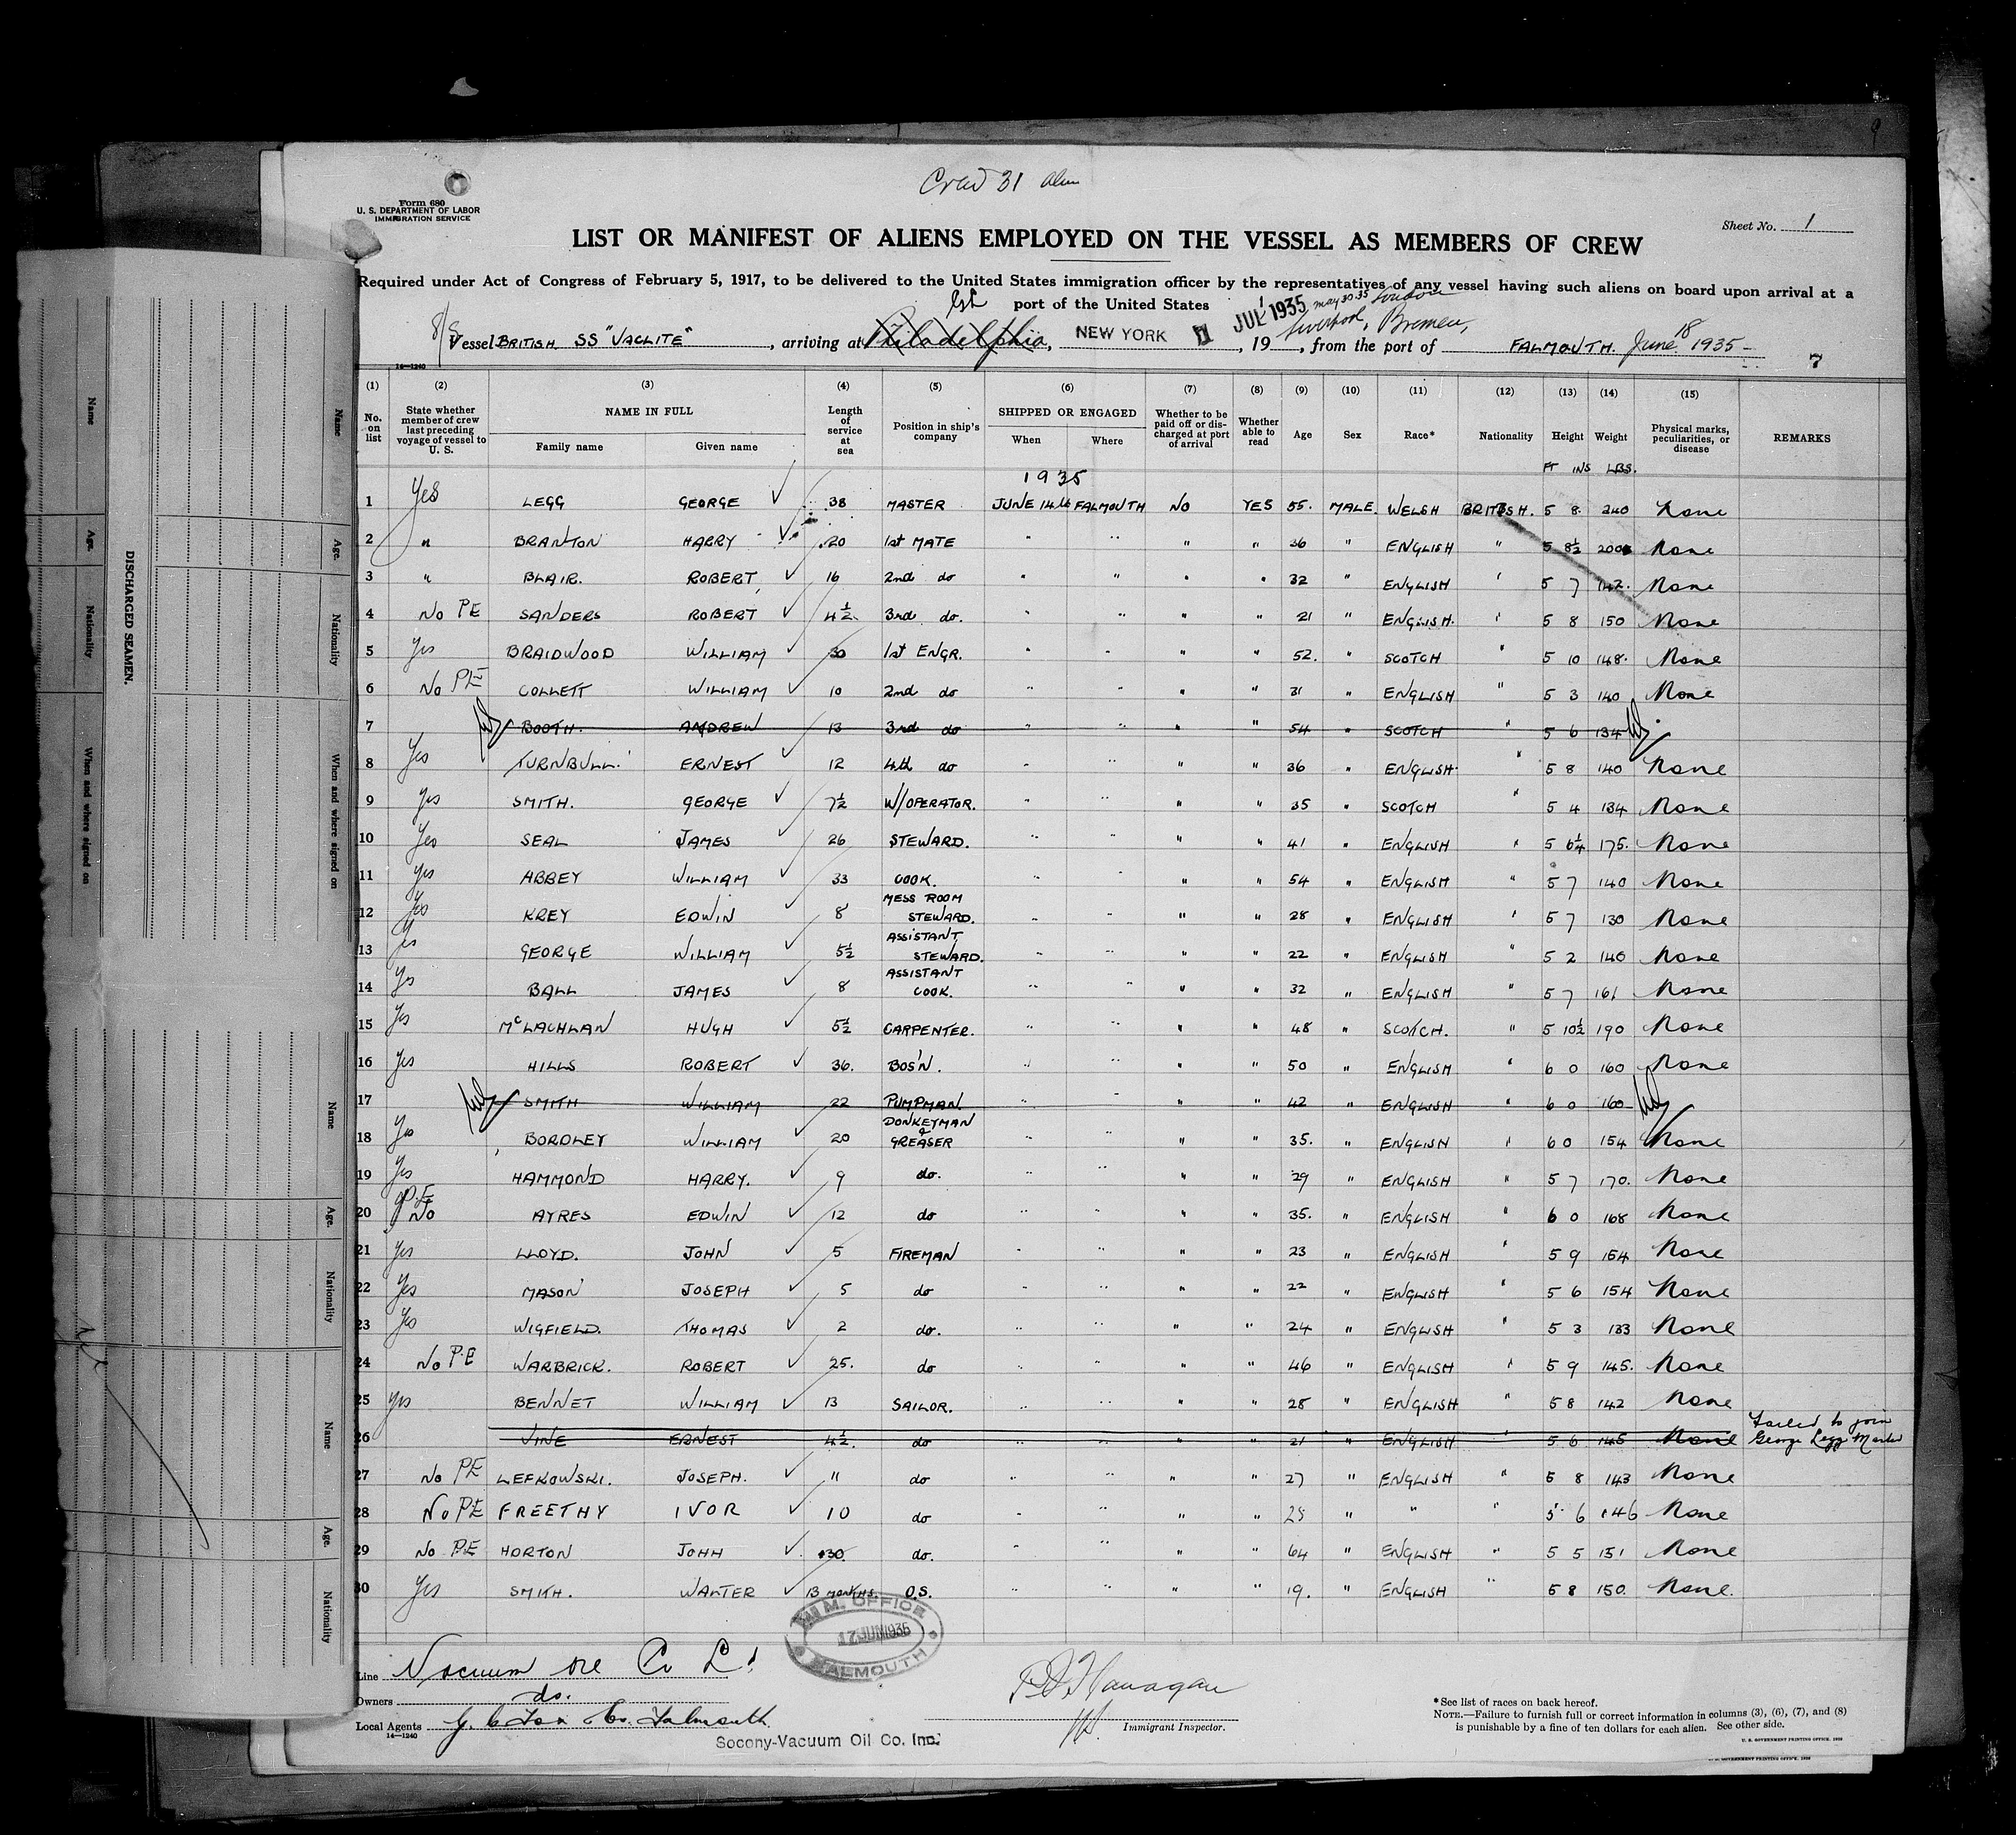 Crew 31 Alien
Form 680
U. S. DEPARTMENT OF LABOR
IMMIGRATION SERVICE
Sheet No. 1
LIST OR MANIFEST OF ALIENS EMPLOYED ON THE VESSEL AS MEMBERS OF CREW
Required under Act of Congress of February 5, 1917, to be delivered to the United States immigration officer by the representatives of any vessel having such aliens on board upon arrival at a
port of the United States
JUL 1 1935 may 30.35 London
Liverpool, Bremen,
Vessel BRITISH SS "VACLITE", arriving at Philadelphia, NEW YORK, 19, from the port of FALMOUTH. June 18 1935-
7
14—1240
(1) (2) (3) (4) (5) (6) (7) (8) (9) (10) (11) (12) (13) (14) (15)
No. on list State whether member of crew last preceding voyage of vessel to U. S. NAME IN FULL Family name Given name Length of service at sea Position in ship's company SHIPPED OR ENGAGED When Where Whether to be paid off or discharged at port of arrival Whether able to read Age Sex Race* Nationality Height Weight Physical marks, peculiarities, or disease REMARKS
FT INS LBS.
1935
1 Yes LEGG GEORGE 38 MASTER JUNE 14th FALMOUTH NO YES 55. MALE. WELSH BRITISH. 5 8 240 None
2 " BRANTON HARRY 20 1st MATE " " " " 36 " ENGLISH " 5 8½ 200 None
3 " BLAIR. ROBERT 16 2nd do " " " " 32 " ENGLISH " 5 7 142. None
4 No PE SANDERS ROBERT 4½ 3rd do. " " " " 21 " ENGLISH. " 5 8 150 None
5 Yes BRAIDWOOD WILLIAM 30 1st ENGR. " " " " 52. " SCOTCH " 5 10 148. None
6 No PE COLLETT WILLIAM 10 2nd do " " " " 31 " ENGLISH " 5 3 140 None
7 BOOTH. ANDREW 13 3rd do " " " " 54 " SCOTCH " 5 6 134
8 Yes TURNBULL. ERNEST 12 4th do " " " " 36 " ENGLISH " 5 8 140 None
9 Yes SMITH. GEORGE 7½ W/OPERATOR. " " " " 35 " SCOTCH " 5 4 134 None
10 Yes SEAL JAMES 26 STEWARD. " " " " 41 " ENGLISH " 5 6¼ 175. None
11 Yes ABBEY WILLIAM 33 COOK. " " " " 54 " ENGLISH " 5 7 140 None
12 Yes KREY EDWIN 8 MESS ROOM STEWARD. " " " " 28 " ENGLISH " 5 7 130 None
13 Yes GEORGE WILLIAM 5½ ASSISTANT STEWARD. " " " " 22 " ENGLISH " 5 2 140 None
14 Yes BALL JAMES 8 ASSISTANT COOK. " " " " 32 " ENGLISH " 5 7 161 None
15 Yes McLACHLAN HUGH 5½ CARPENTER. " " " " 48 " SCOTCH. " 5 10½ 190 None
16 Yes HILLS ROBERT 36. BOS'N. " " " " 50 " ENGLISH " 6 0 160 None
17 SMITH WILLIAM 22 PUMPMAN. " " " " 42 " ENGLISH " 6 0 160
18 Yes BORDLEY WILLIAM 20 DONKEYMAN & GREASER " " " " 35. " ENGLISH " 6 0 154 None
19 Yes HAMMOND HARRY. 9 do. " " " " 29 " ENGLISH " 5 7 170. None
20 P.E No AYRES EDWIN 12 do " " " " 35. " ENGLISH " 6 0 168 None
21 Yes LLOYD. JOHN 5 FIREMAN " " " " 23 " ENGLISH " 5 9 154 None
22 Yes MASON JOSEPH 5 do " " " " 22 " ENGLISH " 5 6 154 None
23 Yes WIGFIELD. THOMAS 2 do. " " " " 24 " ENGLISH " 5 3 133 None
24 No P.E WARBRICK. ROBERT 25. do " " " " 46 " ENGLISH " 5 9 145. None
25 Yes BENNET WILLIAM 13 SAILOR. " " " " 28 " ENGLISH " 5 8 142 None
26 VINE ERNEST 4½. do " " " " 21 " ENGLISH " 5 6 145 None Failed to join George Legg Master
27 No PE LEFKOWSKI. JOSEPH. " do " " " " 27 " ENGLISH " 5 8 143 None
28 No PE FREETHY IVOR 10 do " " " " 25 " " " 5 6 146 None
29 No PE HORTON JOHN 30 do. " " " " 64 " ENGLISH " 5 5 151 None
30 Yes SMITH. WALTER 13 MONTHS. O.S. " " " " 19. " ENGLISH " 5 8 150. None.
M.M. OFFICE
17 JUN 1935
FALMOUTH
Line Vacuum Oil Co Ltd
Owners do.
Local Agents G. C Fox & Co. Falmouth
14—1240
Socony-Vacuum Oil Co. Inc.
P J Flanagan
Immigrant Inspector.
*See list of races on back hereof.
NOTE.—Failure to furnish full or correct information in columns (3), (6), (7), and (8)
is punishable by a fine of ten dollars for each alien. See other side.
U. S. GOVERNMENT PRINTING OFFICE
DISCHARGED SEAMEN.
Name
Age.
Nationality
When and where signed on
Name
Age.
Nationality
When and where signed on
Name
Age.
Nationality
Name
Age.
Nationality